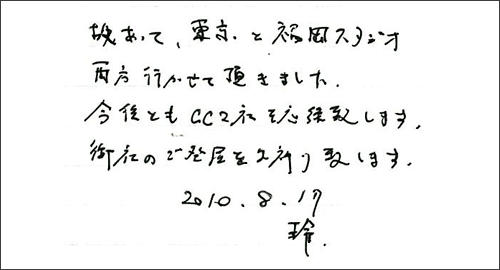 故あって、東京と福岡スタジオ
両方行かせて頂きました。
今後ともCC2社を応援致します。
御社のご発展をお祈り致します。
2010.8.17
玲.